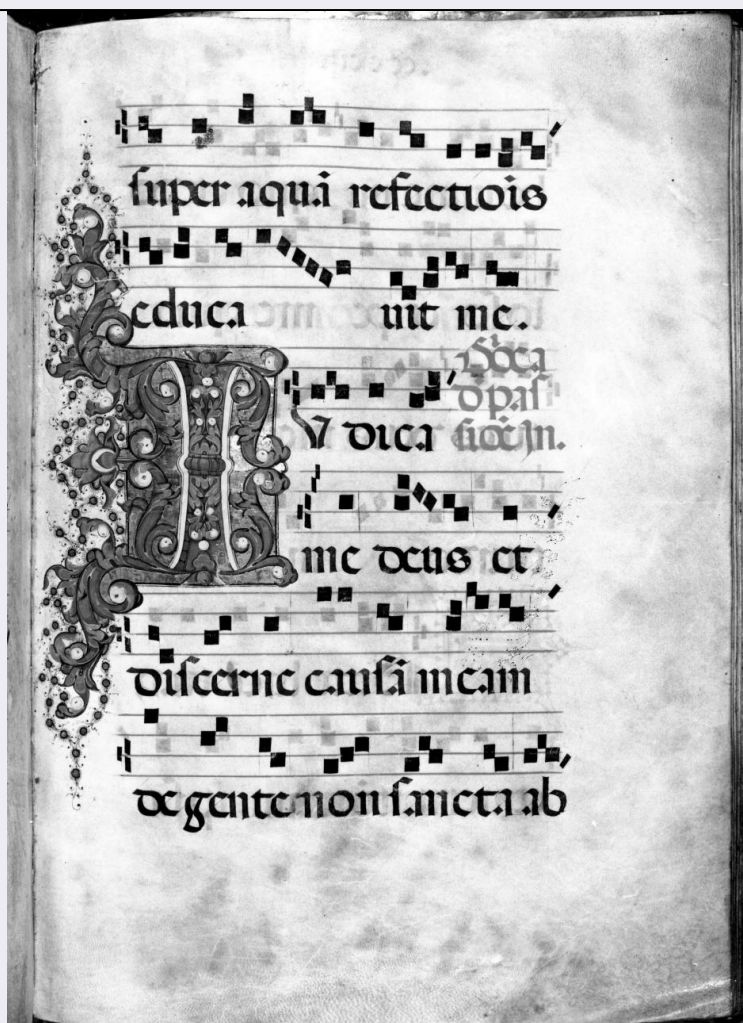 super aquā refectiōis
educa uit me.
Dōca
d pas
siōe In.
IVdica
me deus et
discerne causā meam
de gente non sancta ab